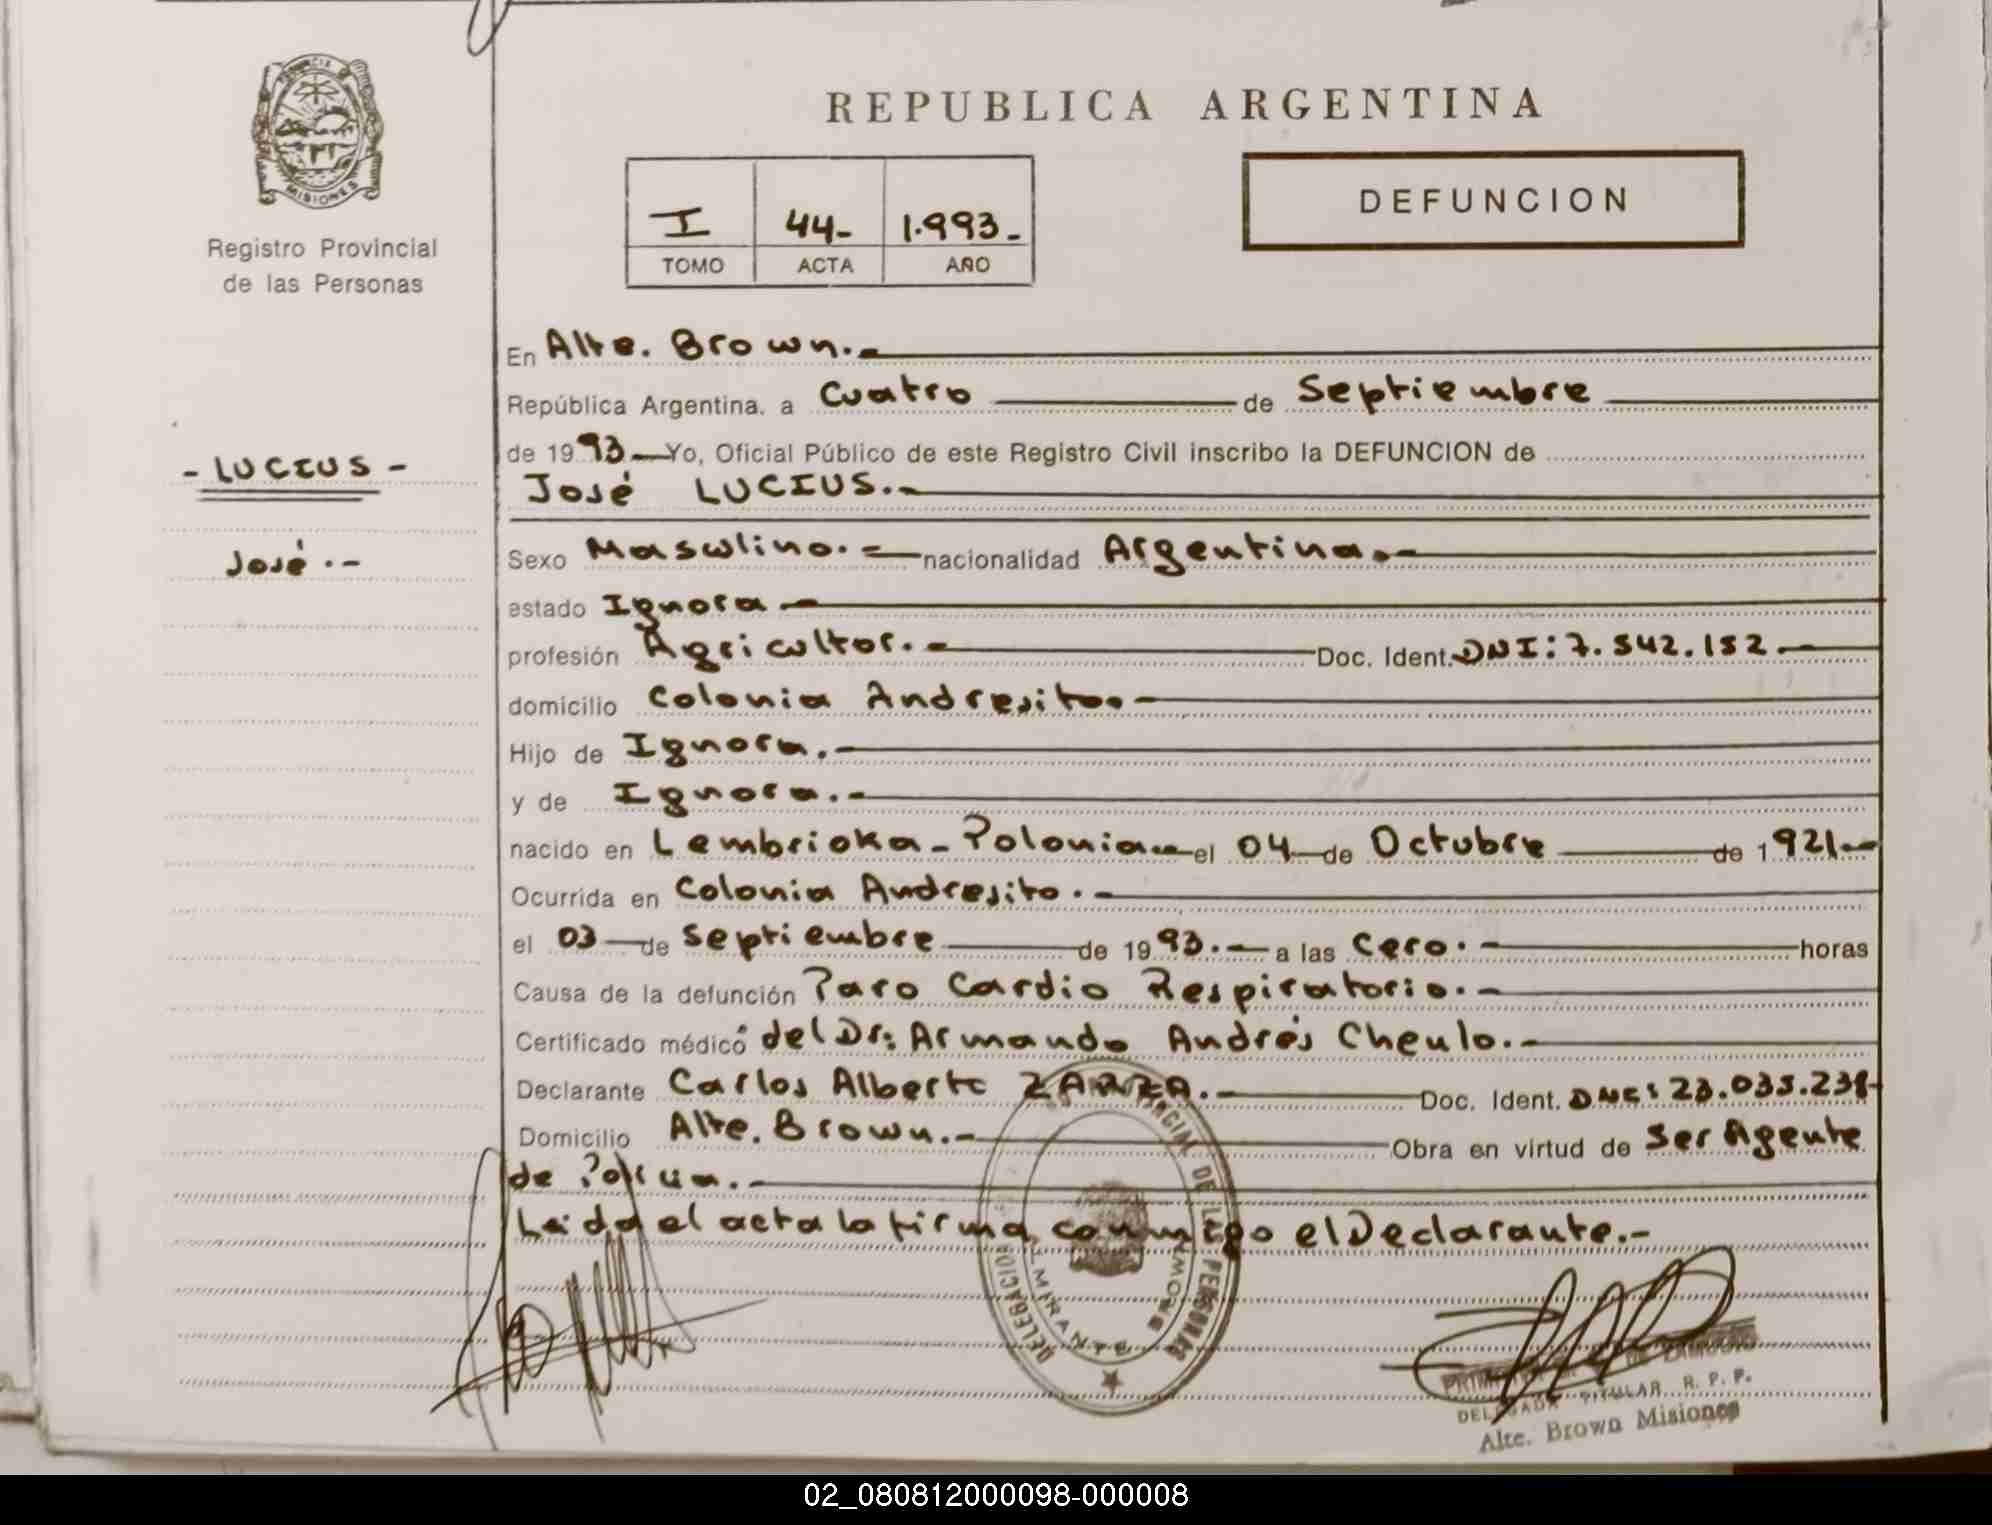 REPUBLICA ARGENTINA
PROVINCIA DE MISIONES
Registro Provincial
de las Personas
I 44- 1.993-
TOMO ACTA AÑO
DEFUNCION
- LUCIUS -
José.-
En Alte. Brown.-
República Argentina, a Cuatro de Septiembre
de 1993 Yo, Oficial Público de este Registro Civil inscribo la DEFUNCION de
José LUCIUS.-
Sexo Masculino.- nacionalidad Argentina.-
estado Ignora-
profesión Agricultor.- Doc. Ident. DNI: 7.542.152.-
domicilio Colonia Andresito.-
Hijo de Ignora.-
y de Ignora.-
nacido en Lembrioka-Polonia- el 04 de Octubre de 1921-
Ocurrida en Colonia Andresito.-
el 03 de Septiembre de 1993.- a las Cero.- horas
Causa de la defunción Paro Cardio Respiratorio.-
Certificado médico del Dr: Armando Andrés Cheulo.-
Declarante Carlos Alberto ZARZA.- Doc. Ident. DNI: 23.035.238-
Domicilio Alte. Brown.- Obra en virtud de Ser Agente
de Policia.-
Leida el acta la firma conmigo el Declarante.-
DELEGACION PROVINCIAL DE LAS PERSONAS
ALMIRANTE BROWN
DELEGADA TITULAR R. P. P.
Alte. Brown Misiones
02_080812000098-000008